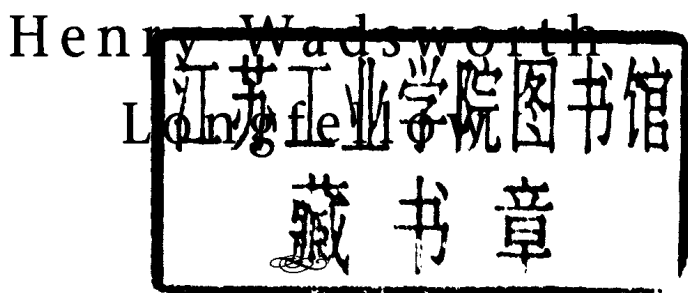 Henry Wadsworth
Longfellow
江苏工业学院图书馆
藏书章